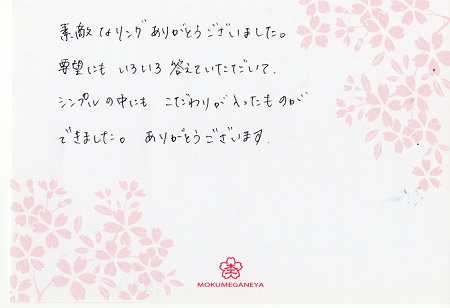 素敵なリングありがとうございました。
要望にもいろいろ答えていただいて、
シンプルの中にもこだわりが入ったものが
できました。ありがとうございます.
MOKUMEGANEYA